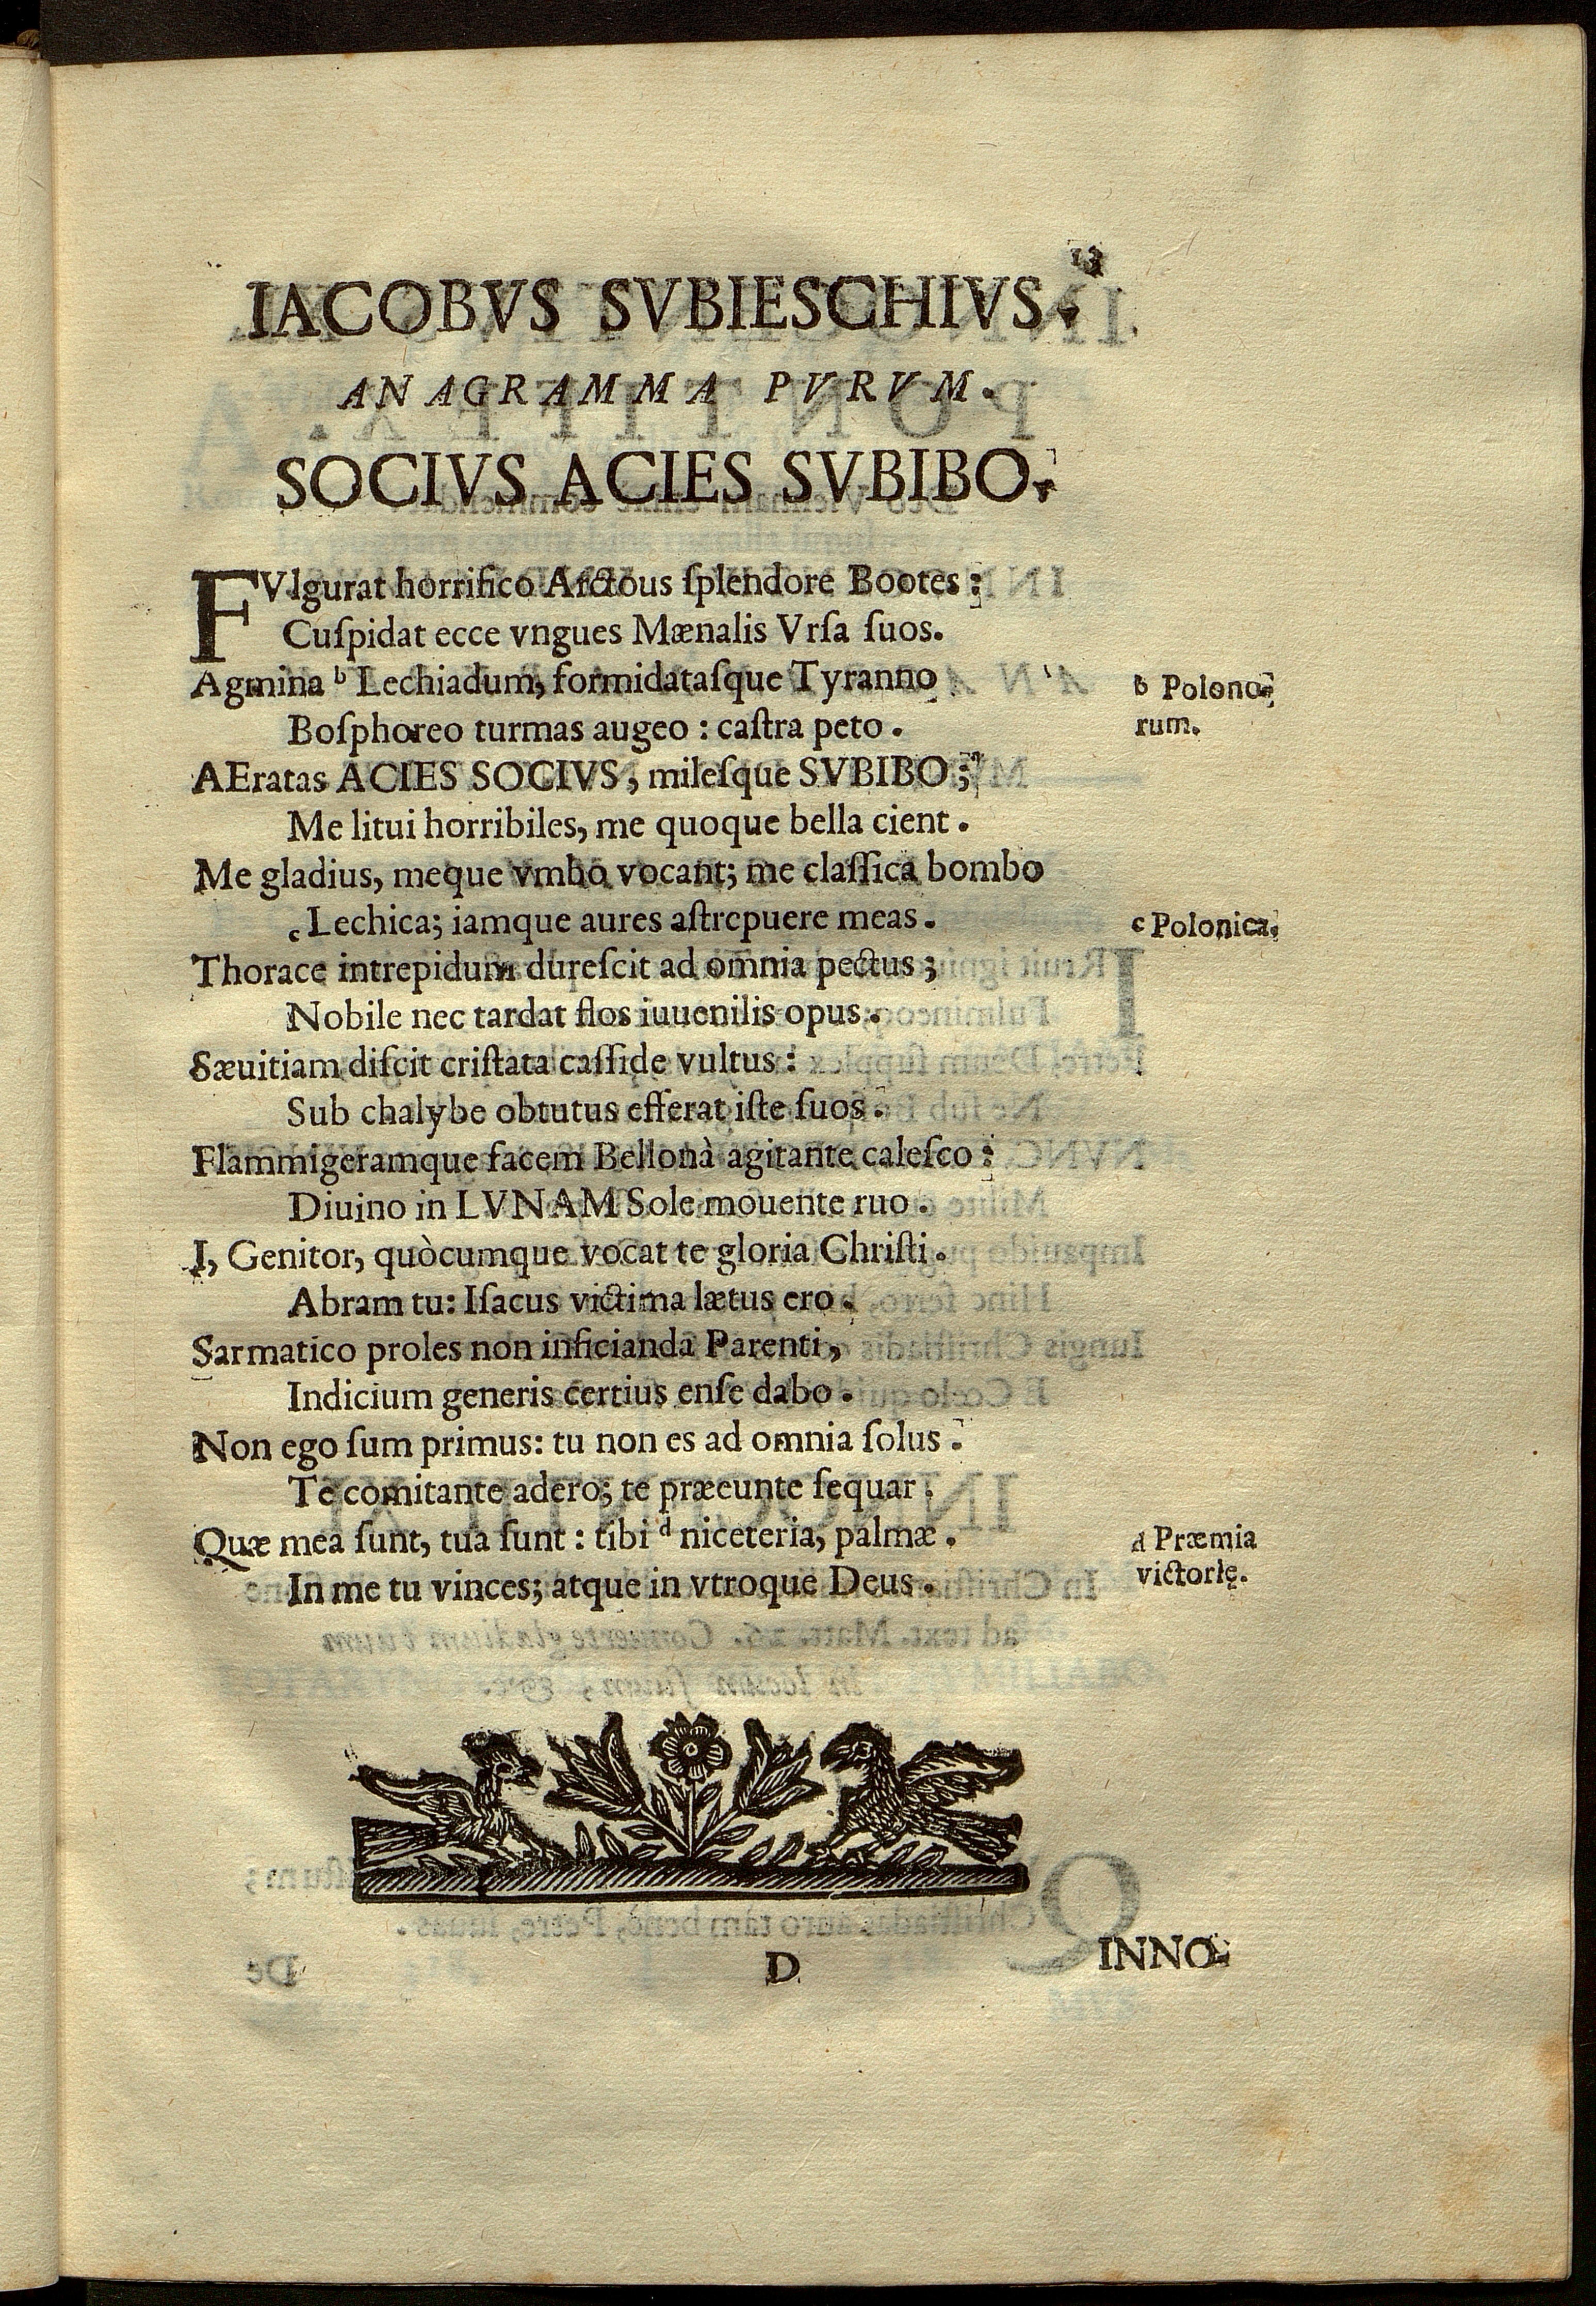 13
IACOBVS SVBIESCHIVS.
ANAGRAMMA PVRVM.
SOCIVS ACIES SVBIBO.
FVlgurat horrifico Arctous ſplendore Bootes:
Cuſpidat ecce vngues Mænalis Vrſa ſuos.
Agmina b Lechiadum, formidataſque Tyranno
b Polono-
Boſphoreo turmas augeo: caſtra peto.
rum.
AEratas ACIES SOCIVS, mileſque SVBIBO;
Me litui horribiles, me quoque bella cient.
Me gladius, meque vmbo vocant; me claſſica bombo
c Lechica; iamque aures aſtrepuere meas.
c Polonica.
Thorace intrepidum dureſcit ad omnia pectus;
Nobile nec tardat flos iuuenilis opus.
Sæuitiam diſcit criſtata caſſide vultus:
Sub chalybe obtutus efferat iſte ſuos.
Flammigeramque facem Bellonà agitante caleſco:
Diuino in LVNAM Sole mouente ruo.
I, Genitor, quòcumque vocat te gloria Chriſti.
Abram tu: Iſacus victima lætus ero.
Sarmatico proles non inficianda Parenti,
Indicium generis certius enſe dabo.
Non ego ſum primus: tu non es ad omnia ſolus.
Te comitante adero; te præeunte ſequar.
Quæ mea ſunt, tua ſunt: tibi d niceteria, palmæ.
d Præmia
In me tu vinces; atque in vtroque Deus.
victorię.
D
INNO-